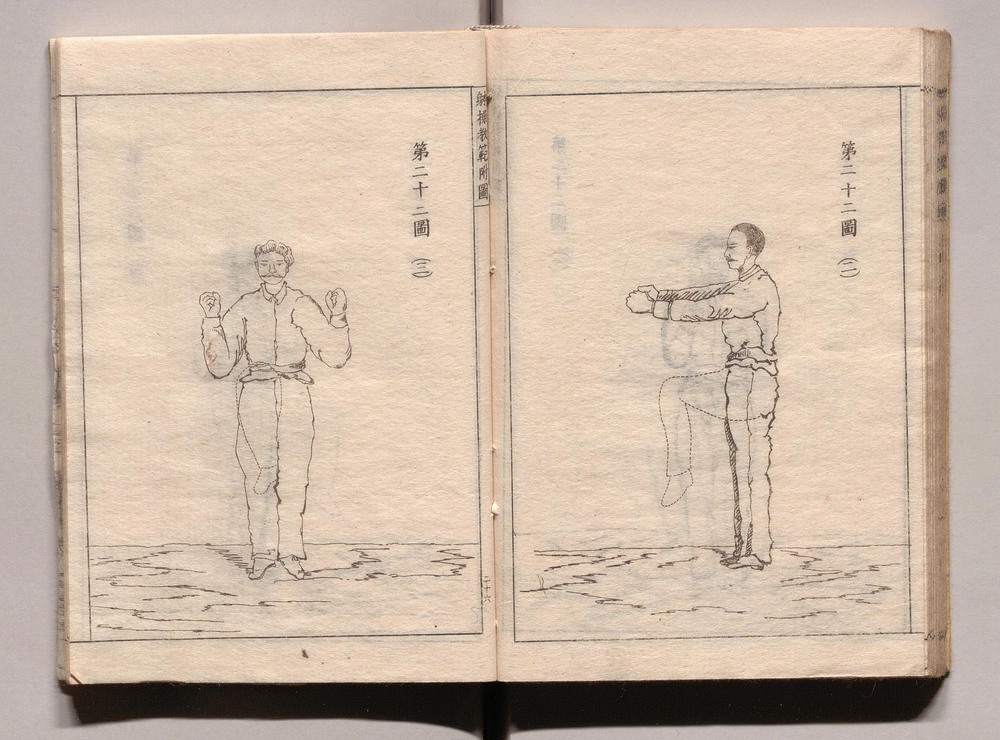 第二十二圖 (二)
第二十二圖 (三)
體操教範附圖
二十六